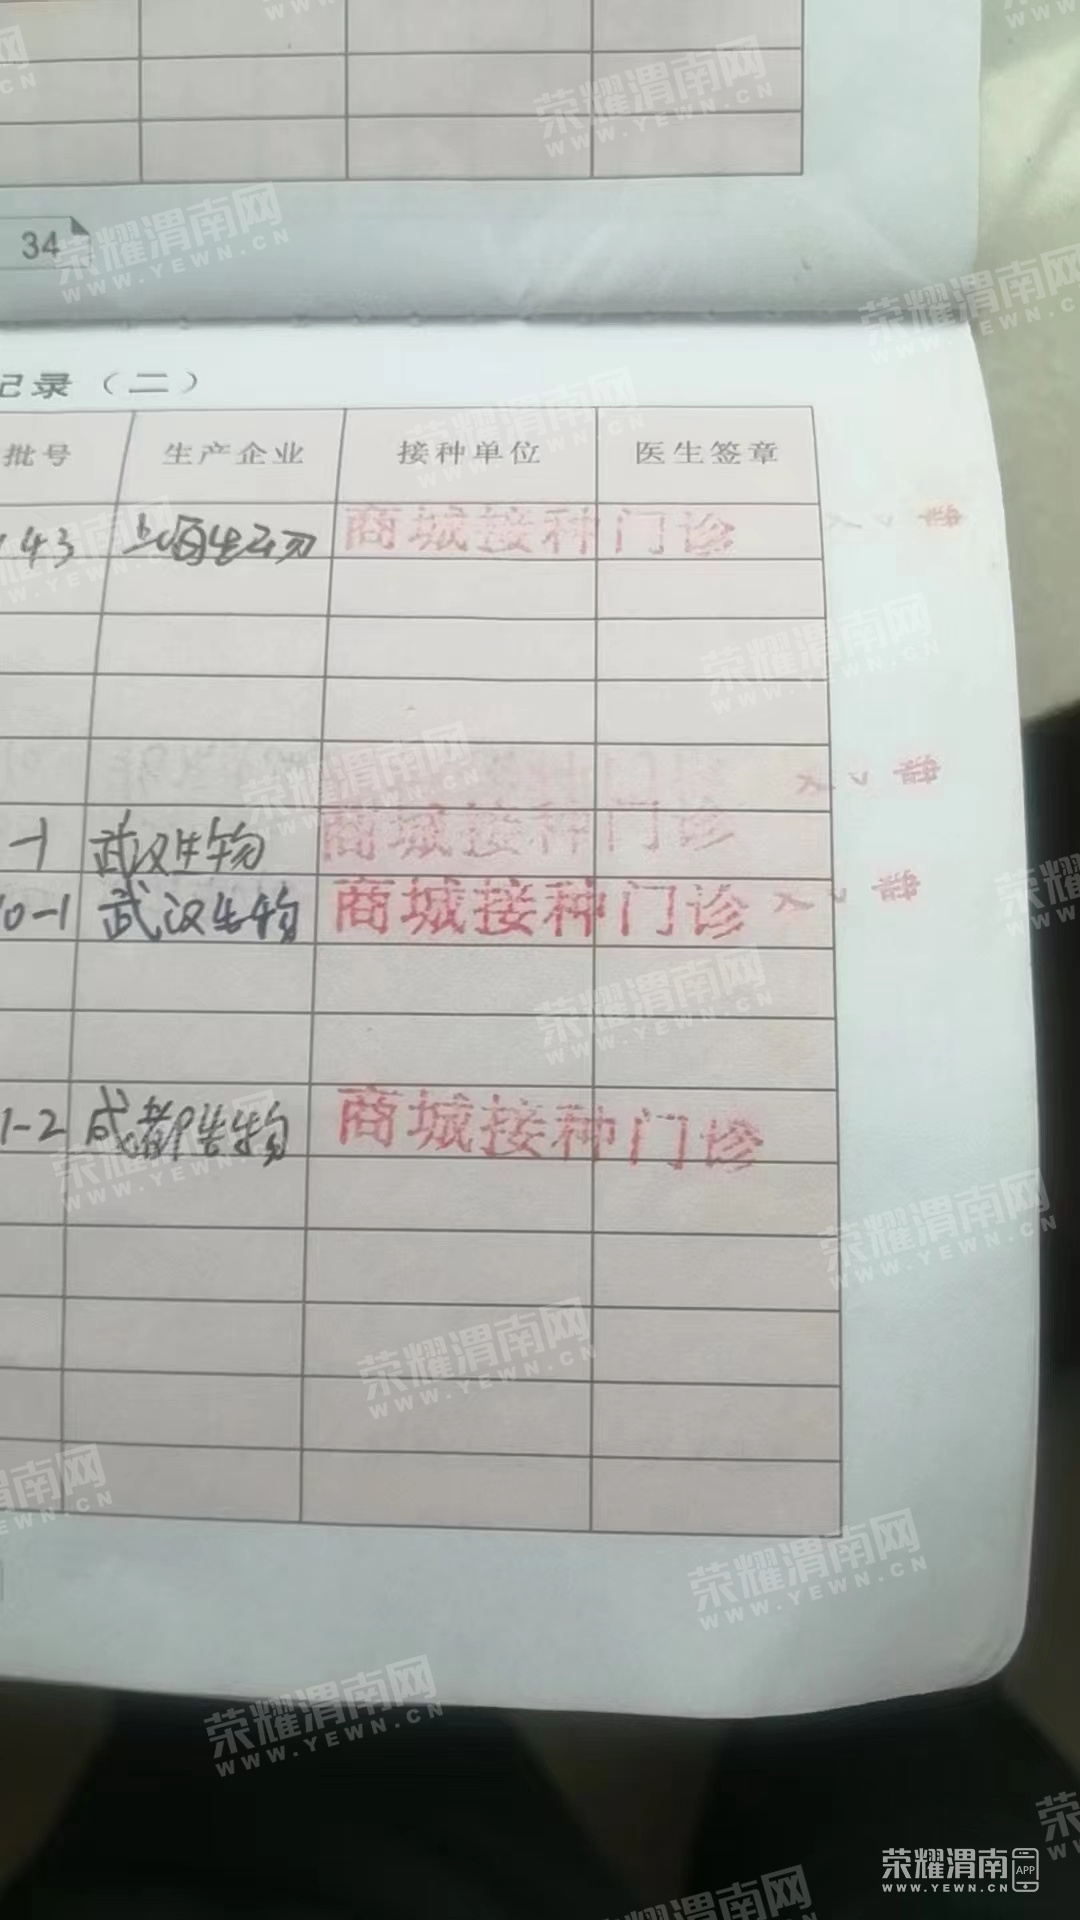 34
记录（二）
批号 生产企业 接种单位 医生签章
43 上海生物 商城接种门诊
-1 武汉生物 商城接种门诊
10-1 武汉生物 商城接种门诊
1-2 成都生物 商城接种门诊
荣耀渭南网 APP
WWW.YEWN.CN